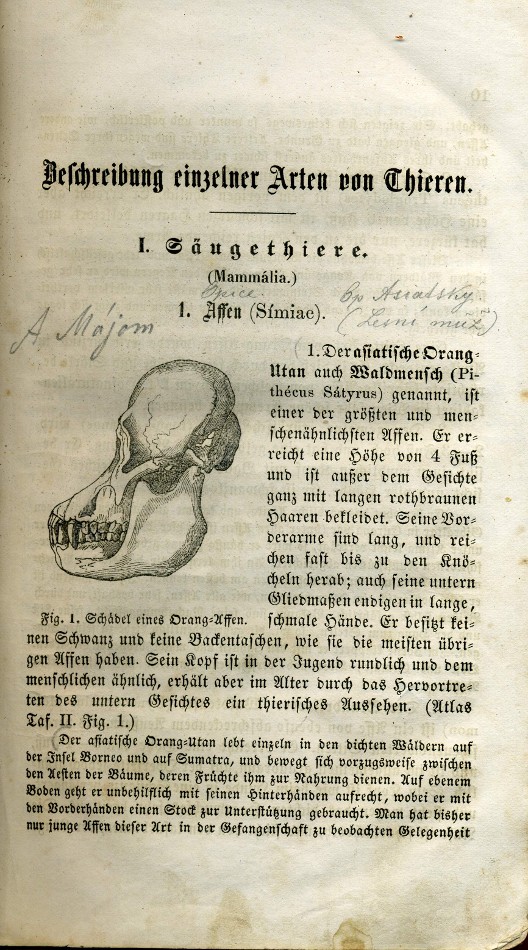 Beschreibung einzelner Arten von Thieren.
I. Säugethiere.
(Mammália.)
Opice. Op Asiatský
1. Affen (Símiae). (Lesní muž).
A Májom
1. Der asiatische Orang-
Utan auch Waldmensch (Pi-
thécus Sátyrus) genannt, ist
einer der größten und men-
schenähnlichsten Affen. Er er-
reicht eine Höhe von 4 Fuß
und ist außer dem Gesichte
ganz mit langen rothbraunen
Haaren bekleidet. Seine Vor-
derarme sind lang, und rei-
chen fast bis zu den Knö-
cheln herab; auch seine untern
Gliedmaßen endigen in lange,
schmale Hände. Er besitzt kei-
Fig. 1. Schädel eines Orang-Affen.
nen Schwanz und keine Backentaschen, wie sie die meisten übri-
gen Affen haben. Sein Kopf ist in der Jugend rundlich und dem
menschlichen ähnlich, erhält aber im Alter durch das Hervortre-
ten des untern Gesichtes ein thierisches Aussehen. (Atlas
Taf. II. Fig. 1.)
Der asiatische Orang-Utan lebt einzeln in den dichten Wäldern auf
der Insel Borneo und auf Sumatra, und bewegt sich vorzugsweise zwischen
den Aesten der Bäume, deren Früchte ihm zur Nahrung dienen. Auf ebenem
Boden geht er unbehilflich mit seinen Hinterhänden aufrecht, wobei er mit
den Vorderhänden einen Stock zur Unterstützung gebraucht. Man hat bisher
nur junge Affen dieser Art in der Gefangenschaft zu beobachten Gelegenheit